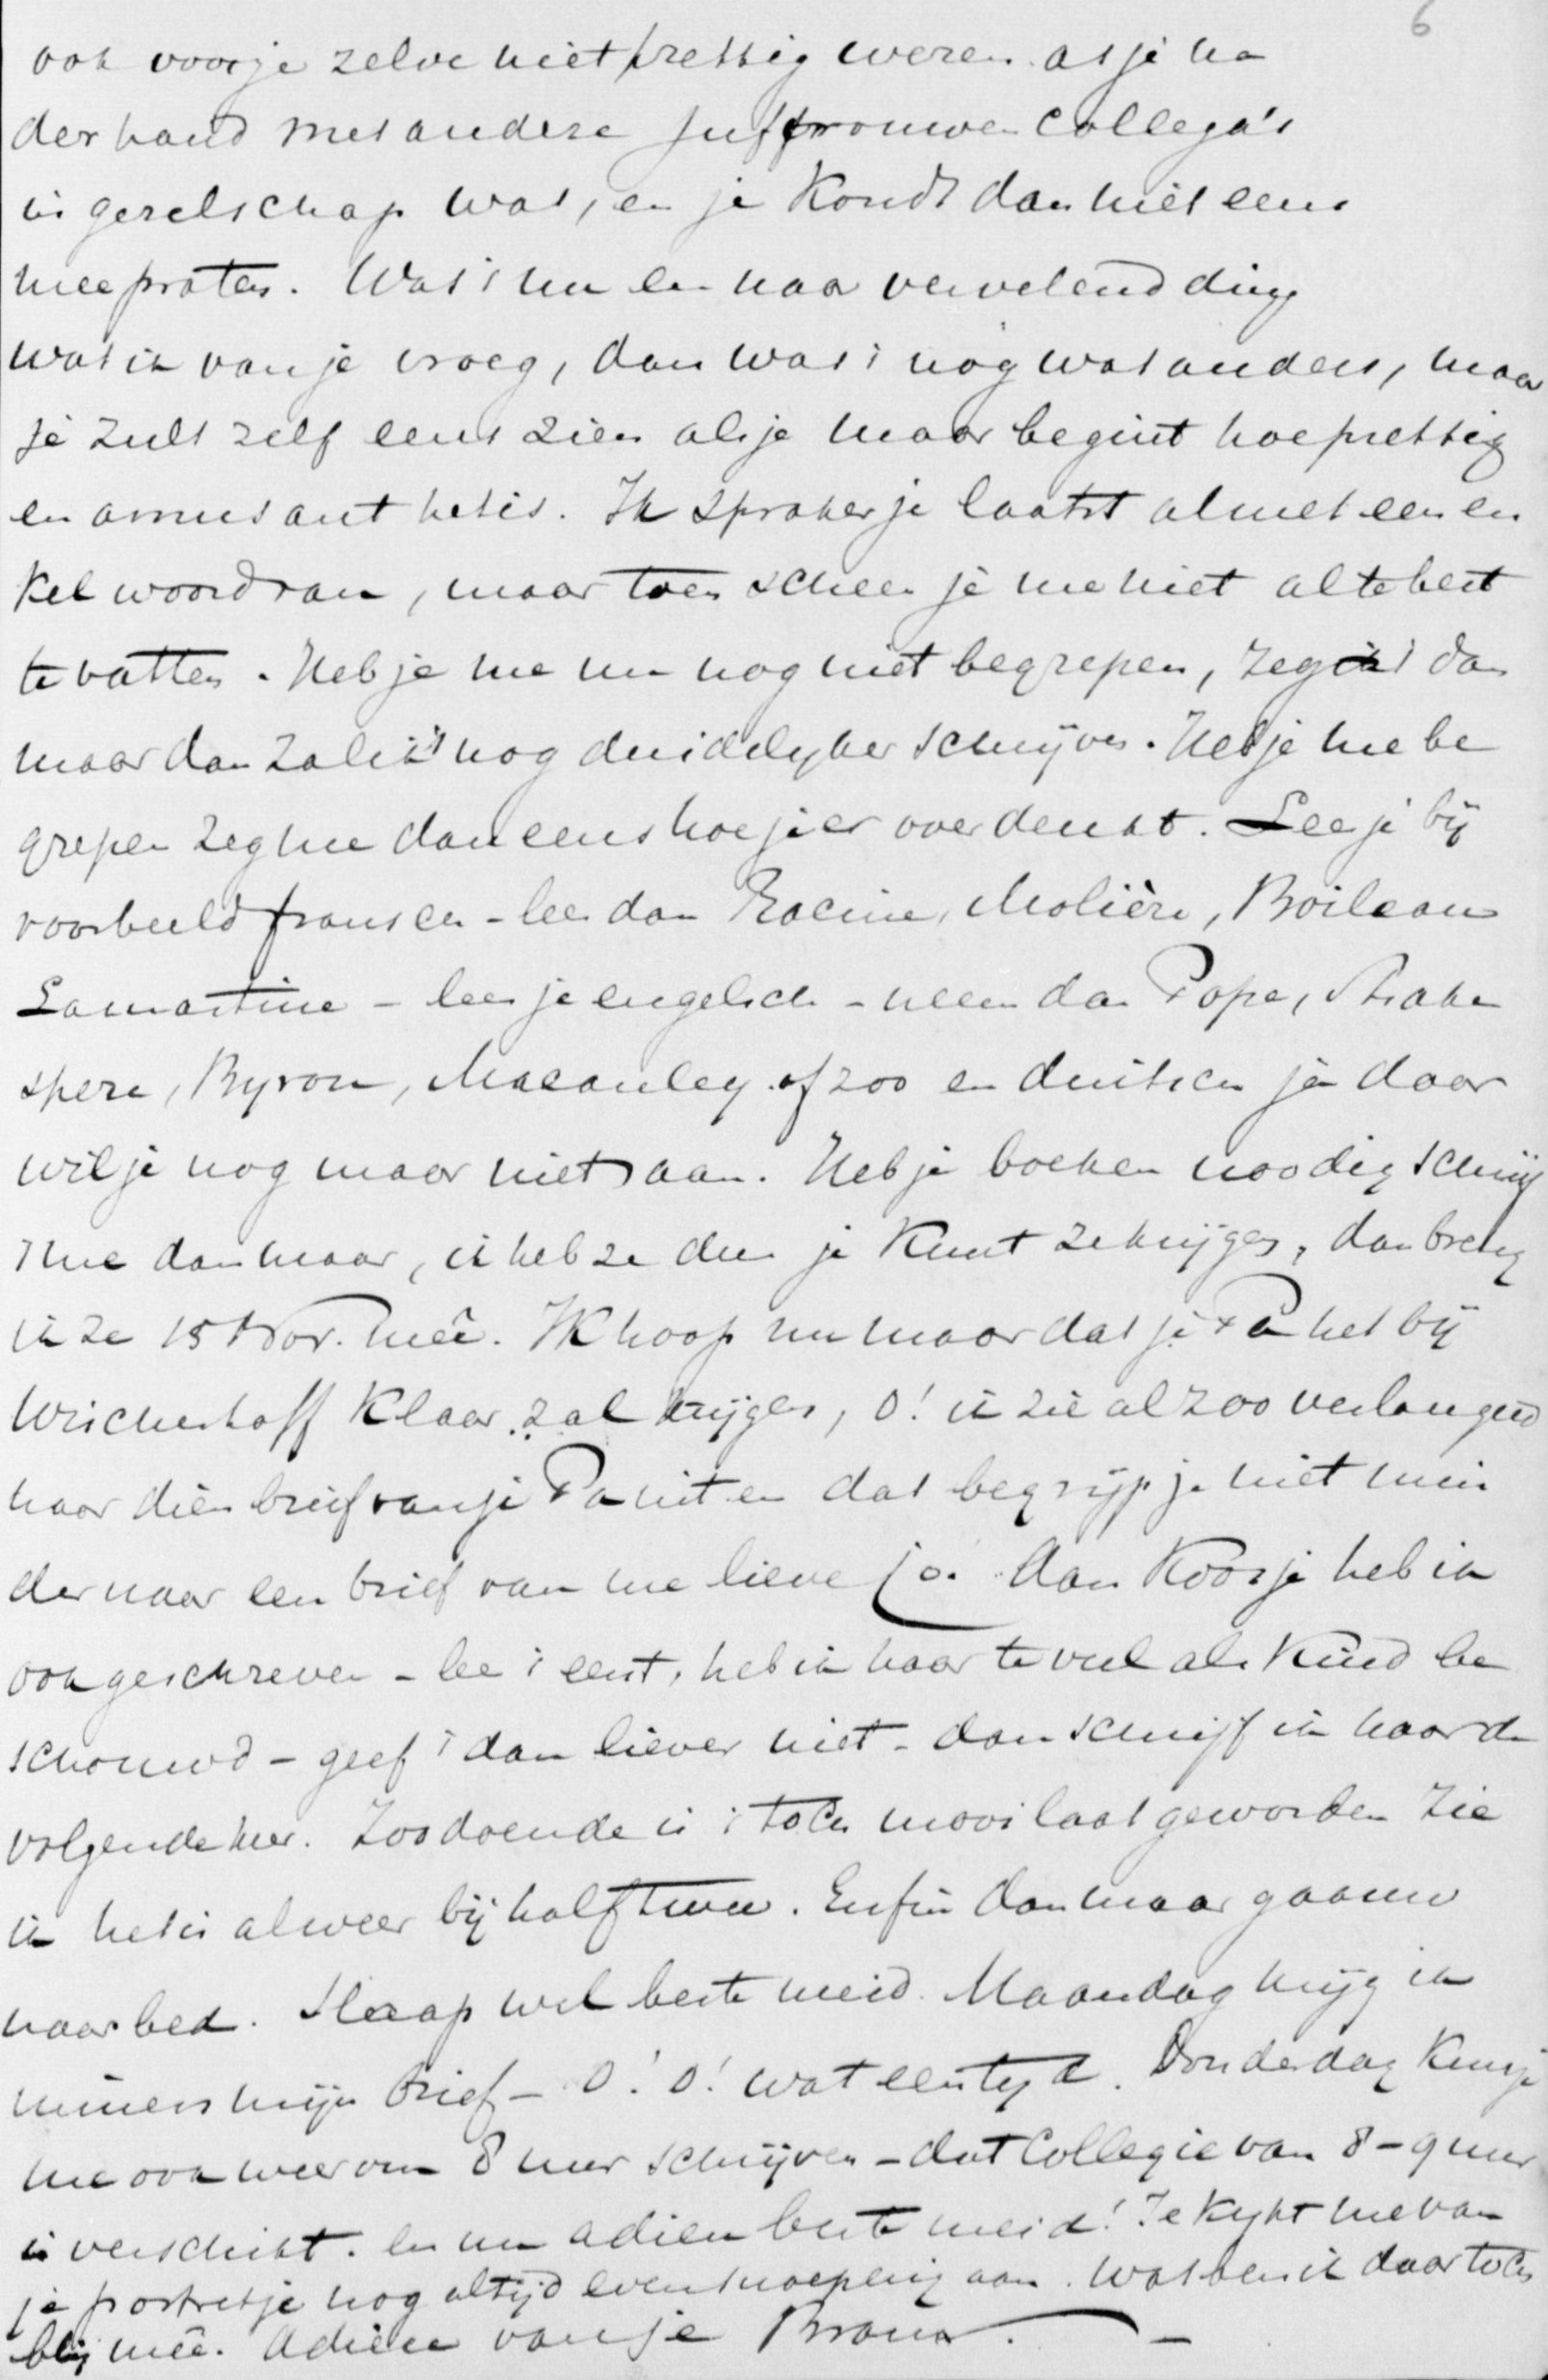 6
ook voor je zelve niet prettig wezen als je na
der hand met andere juffrouwen collega's
in gezelschap was, en je kondt dan niet eens
meepraten. Was 't nu en naar vervelend ding
wat ik van je vroeg, dan was 't nog wat anders, maar
je zult zelf eens zien als je maar begint hoe prettig
en amusant het is. Ik sprak er je laatst al met een en
kel woord van, maar toen scheen je me niet al te best
te vatten. Heb je me nu nog niet begrepen, zeg 't dan
maar dan zal ik 't nog duidelyker schrijven. Heb je me be
grepen zeg me dan eens hoe je er over denkt. Lees je bij
voorbeeld fransch - lees dan Racine, Molière, Boileau
Lamartine - lees je engelsch - neem dan Pope, Shake
spere, Byron, Macauley of zoo en duitsch ja daar
wil je nog maar niet aan. Heb je boeken noodig schrijf
't me dan maar, ik heb ze dus je kunt ze krijgen, dan breng
ik ze 15 Nov. meê. Ik hoop nu maar dat je Pa het bij
Wicherhoff klaar zal krijgen, O! ik zie al zoo verlangend
naar dien brief van je Pa uit en dat begrijp je niet min
der naar een brief van me lieve Jo. Aan Koosje heb ik
ook geschreven - lees 't eerst, heb ik haar te veel als kind be
schouwd - geef 't dan liever niet - dan schrijf ik haar de
volgende keer. Zoodoende is 't toch mooi laat geworden zie
ik het is alweer bij half twee. Enfin dan maar gaauw
naar bed. Slaap wel beste meid. Maandag krijg ik
immers mijn brief - O! O! wat een tyd. Donderdag kun je
me ook weer om 8 uur schrijven - dat Collegie van 8 - 9 uur
is verschikt. En nu adieu beste meid! Je kykt me van
je portretje nog altijd even snoeperig aan. Wat ben ik daar toch
blij meê. Adieu van je Bram.